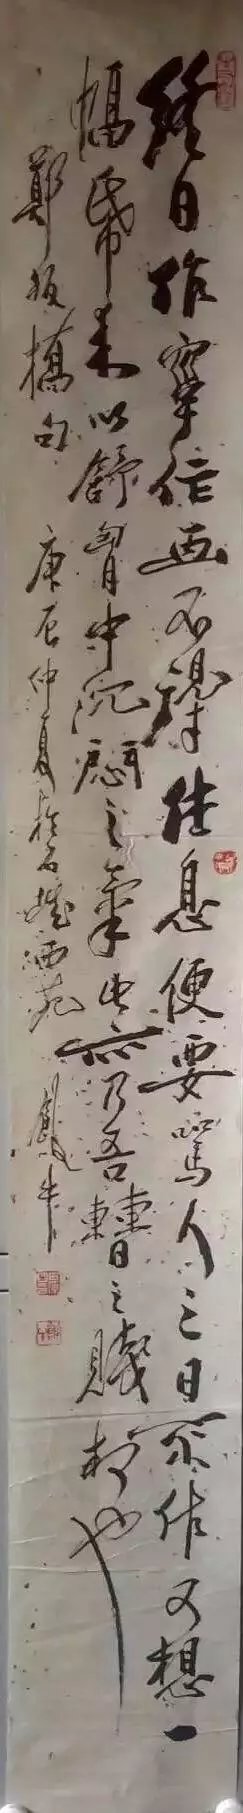 終日作字作画不得休息便要罵人三日不作又想一
幅帋来以舒胷中沉悶之氣此亦乃吾曹之賤相也
鄭板橋句 庚辰仲夏於石城